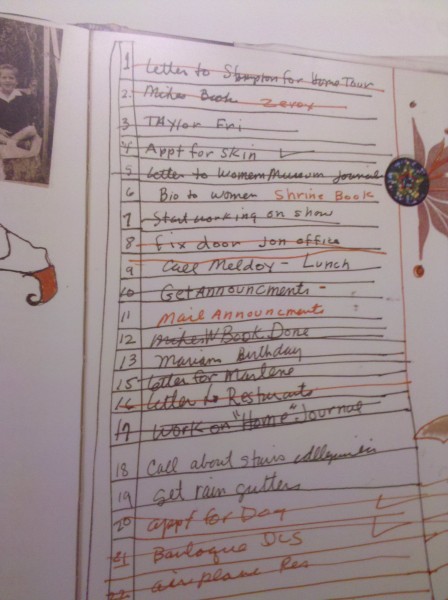 1 Letter to for Home Tour
2. Mikes Book Zerox
3 TAylor Fri
4 Appt for Skin ✓
5 Letter to Women Museum Journal
6 Bio to women Shrine Book
7 Start working on show
8 Fix door Jon office
9 Call Meldoy - Lunch
10 Get Announcments -
11 Mail Announcments
12 Book Done
13 Mariam Birthday
15 Letter for Marlene
16 Letter to
17 Work on "Home" Journal
18 Call about stairs
19 Get rain gutters
20 appt for Dog ✓
21 DLS ✓
22 airplane Res